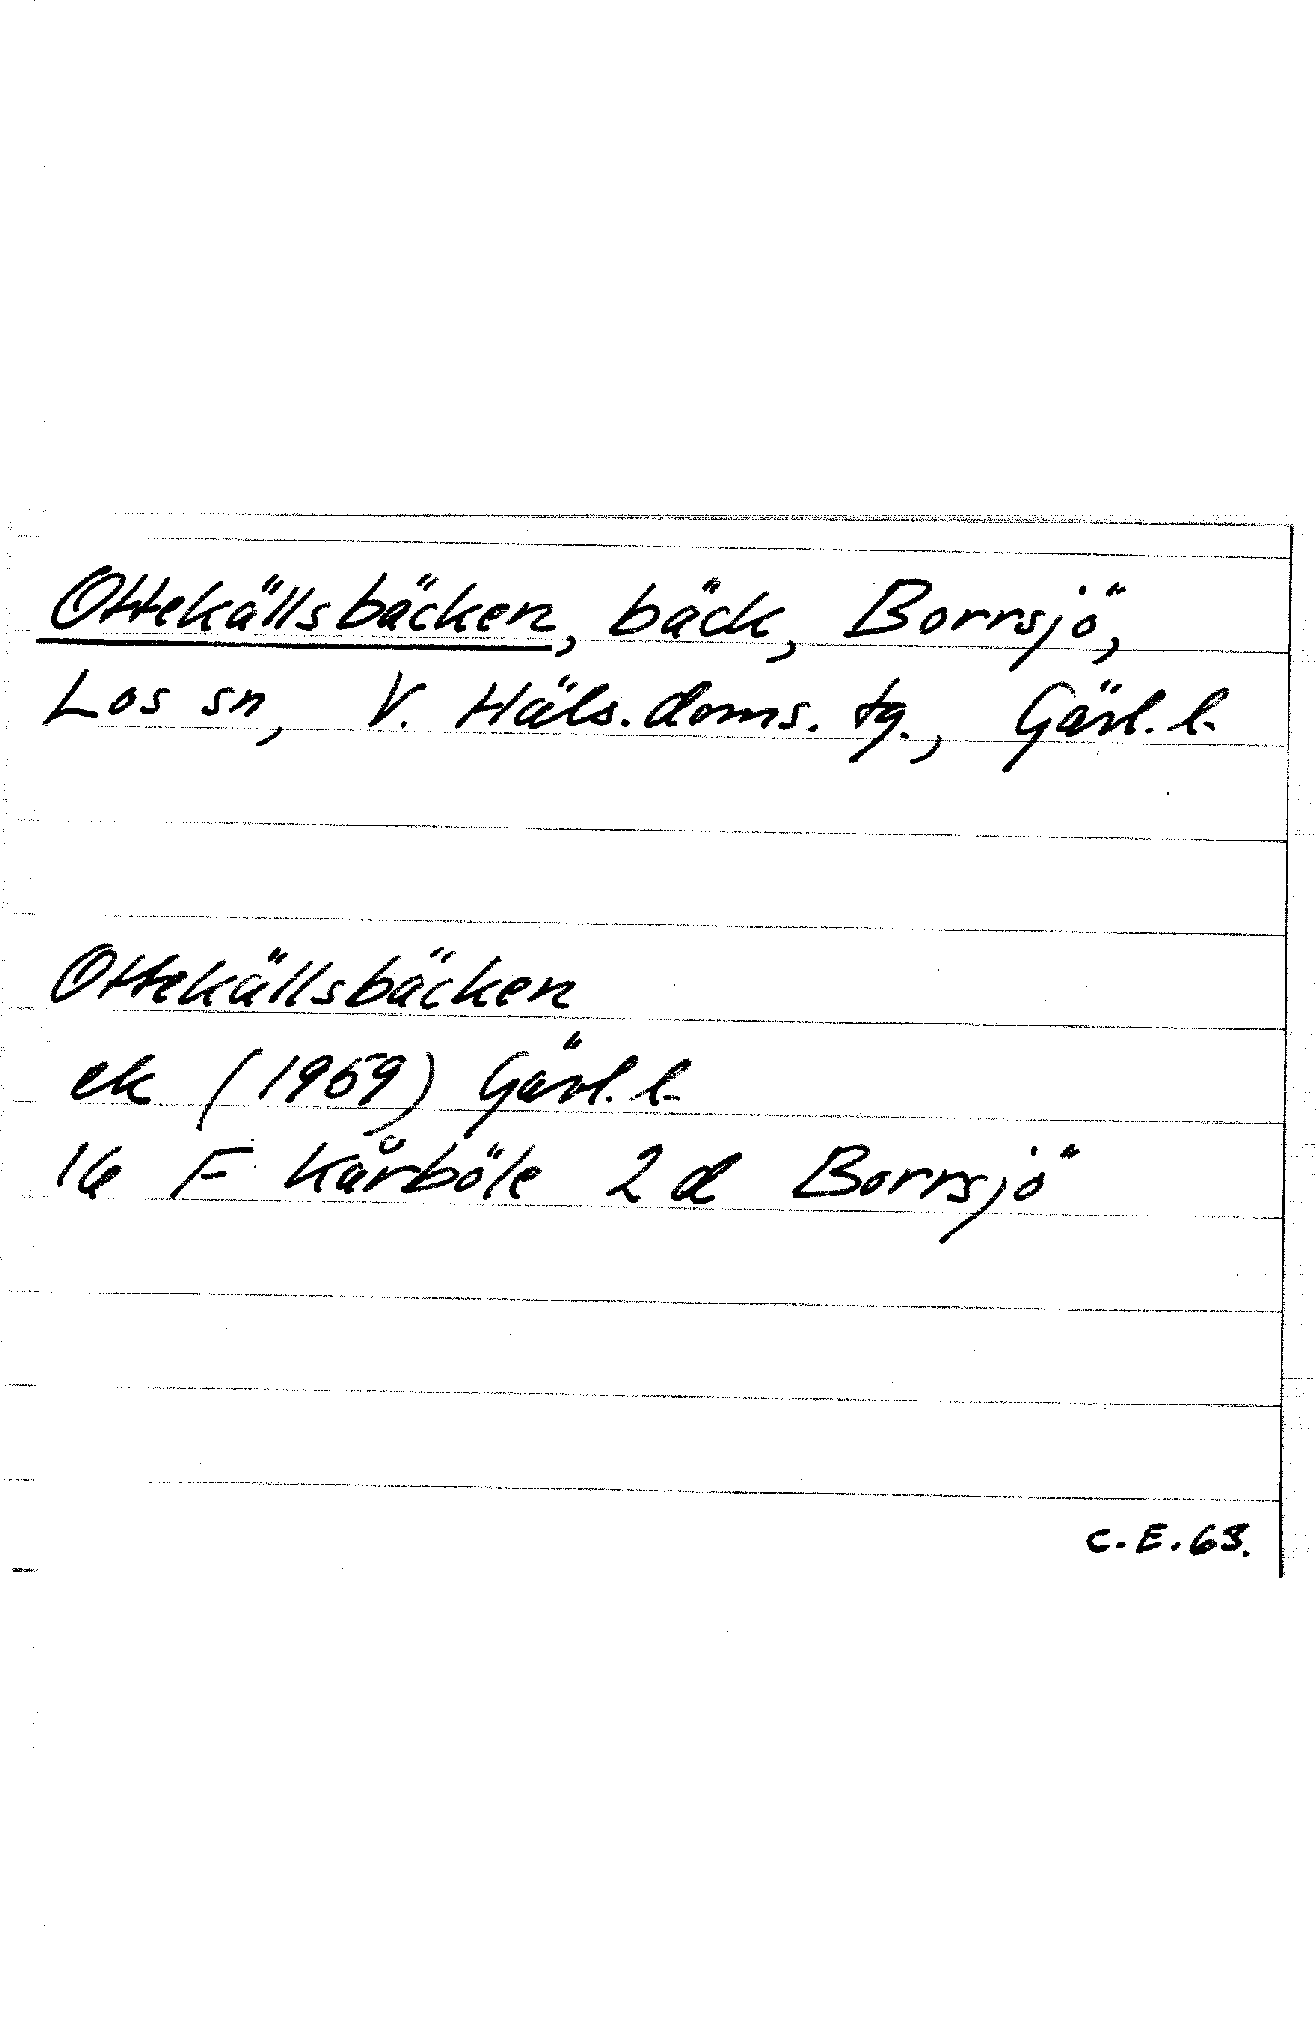 Ottekällsbäcken, bäck, Borrsjö,
Los sn, V. Häls. doms. tg., Gävl. l.
Ottekällsbäcken
ek (1959) Gävl. l.
16 F Kårböle 2 d Borrsjö
C. E. 63.